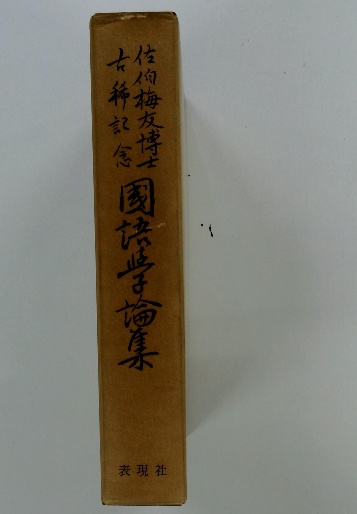 佐伯梅友博士
古稀記念
國語学論集
表現社